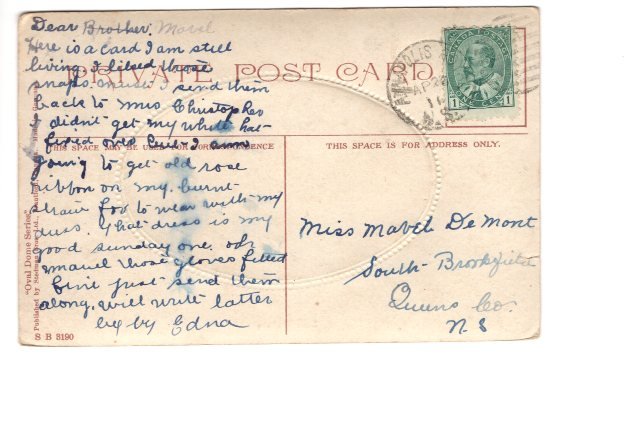 Dear Brother. 
Here is a card I am still
living. I liked those
snaps must I send them
back to Miss Christopher
I didn't get my white hat
fixed over but I am
going to get old rose
ribbon on my burnt
straw for to wear with my
dress. that dress is my
good sunday one. oh
maud those gloves fitted
fine just send them
along. will write latter
by by Edna
PRIVATE POST CARD
THIS SPACE MAY BE USED FOR CORRESPONDENCE
THIS SPACE IS FOR ADDRESS ONLY.
Miss Mabel De Mont
South Brookfield
Queens Co.
N S
CANADA POSTAGE
1 1
AP 2
11
N.S.
"Oval Dome Series"
Published by Stedman Bros. Ltd., Brantford,
S B 3190